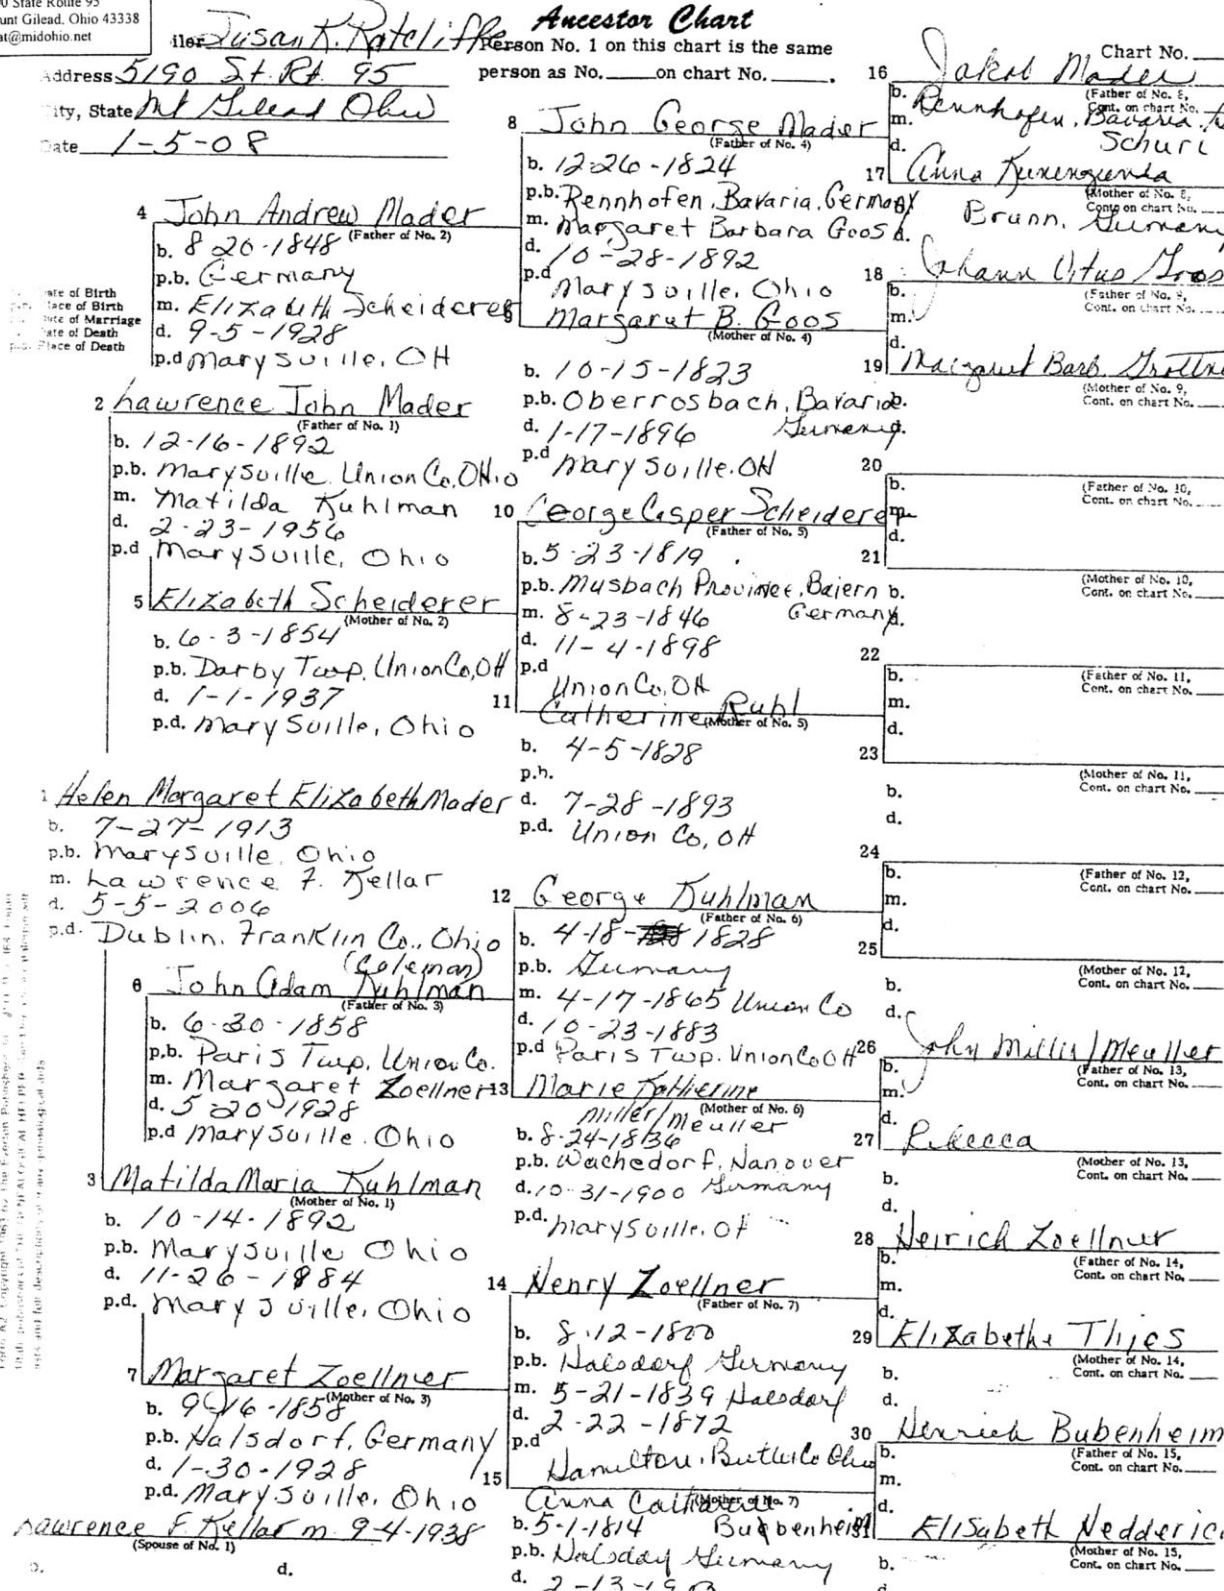 0 State Route 95
unt Gilead, Ohio 43338
at@midohio.net
iler Susan K. Ratcliffe
Address 5190 St. Rt. 95
ity, State Mt Gilead Ohio
Date 1-5-08
Ancestor Chart
Person No. 1 on this chart is the same
person as No. on chart No. .
Chart No.
ate of Birth
lace of Birth
ate of Marriage
ate of Death
Place of Death
1 Helen Margaret Elizabeth Mader
b. 7-27-1913
p.b. Marysville, Ohio
m. Lawrence F. Kellar
d. 5-5-2006
p.d. Dublin, Franklin Co., Ohio
2 Lawrence John Mader
(Father of No. 1)
b. 12-16-1892
p.b. Marysville Union Co, OHio
m. Matilda Kuhlman
d. 2-23-1956
p.d Marysville, Ohio
3 Matilda Maria Kuhlman
(Mother of No. 1)
b. 10-14-1892
p.b. Marysville Ohio
d. 11-26-1984
p.d. Marysville, Ohio
Lawrence F. Kellar m. 9-4-1938
(Spouse of No. 1)
d.
4 John Andrew Mader
(Father of No. 2)
b. 8 20-1848
p.b. Germany
m. Elizabeth Scheiderer
d. 9-5-1928
p.d Marysville, OH
5 Elizabeth Scheiderer
(Mother of No. 2)
b. 6-3-1854
p.b. Darby Twp, Union Co, OH
d. 1-1-1937
p.d. Marysville, Ohio
(Coleman)
6 John Adam Kuhlman
(Father of No. 3)
b. 6-30-1858
p.b. Paris Twp, Union Co.
m. Margaret Zoellner
d. 5-20-1928
p.d Marysville, Ohio
7 Margaret Zoellner
(Mother of No. 3)
b. 9-16-1858
p.b. Halsdorf, Germany
d. 1-30-1928
p.d. Marysville, Ohio
8 John George Mader
(Father of No. 4)
b. 12-26-1824
p.b. Rennhofen, Bavaria, Germany
m. Margaret Barbara Goos
d. 10-28-1892
p.d Marysville, Ohio
9 Margaret B. Goos
(Mother of No. 4)
b. 10-15-1823
p.b. Oberrosbach, Bavaria
d. 1-17-1896 Germany
p.d Marysville, OH
10 George Casper Scheiderer
(Father of No. 5)
b. 5-23-1819
p.b. Musbach Province, Baiern
m. 8-23-1846 Germany
d. 11-4-1898
p.d Union Co, OH
11 Catherine Ruhl
(Mother of No. 5)
b. 4-5-1828
p.b.
d. 7-28-1893
p.d. Union Co, OH
12 George Kuhlman
(Father of No. 6)
b. 4-18- 1828
p.b. Germany
m. 4-17-1865 Union Co
d. 10-23-1883
p.d Paris Twp. Union Co OH
13 Marie Katherine
Miller/Meuller
(Mother of No. 6)
b. 8-24-1836
p.b. Wachedorf, Hanover
d. 10-31-1900 Germany
p.d. Marysville, OH
14 Henry Zoellner
(Father of No. 7)
b. 8-12-1800
p.b. Halsdorf Germany
m. 5-21-1839 Halsdorf
d. 2-22-1872
p.d Hamilton, Butler Co Ohio
15 Anna Catharine
(Mother of No. 7)
Bubenheim
b. 5-1-1814
p.b. Halsdorf Germany
d. 2-13-
16 Jakob Mader
(Father of No. 8,
Cont. on chart No.
b. Rennhofen, Bavaria
m.
d.
17 Anna Kunengunda
(Mother of No. 8,
Cont. on chart No.
Brunn, Germany
18 Johann Vitus Goos
(Father of No. 9,
Cont. on chart No.
b.
m.
d.
19 Margaret Barb.
(Mother of No. 9,
Cont. on chart No.
b.
d.
20
(Father of No. 10,
Cont. on chart No.
b.
m.
d.
21
(Mother of No. 10,
Cont. on chart No.
b.
d.
22
(Father of No. 11,
Cont. on chart No.
b.
m.
d.
23
(Mother of No. 11,
Cont. on chart No.
b.
d.
24
(Father of No. 12,
Cont. on chart No.
b.
m.
d.
25
(Mother of No. 12,
Cont. on chart No.
b.
d.
26 John Millis/Meuller
(Father of No. 13,
Cont. on chart No.
b.
m.
d.
27 Rebecca
(Mother of No. 13,
Cont. on chart No.
b.
d.
28 Heirich Zoellner
(Father of No. 14,
Cont. on chart No.
b.
m.
d.
29 Elizabethe Thies
(Mother of No. 14,
Cont. on chart No.
b.
d.
30 Henrich Bubenheim
(Father of No. 15,
Cont. on chart No.
b.
m.
d.
Elisabeth Nedderic
(Mother of No. 15,
Cont. on chart No.
b.
d